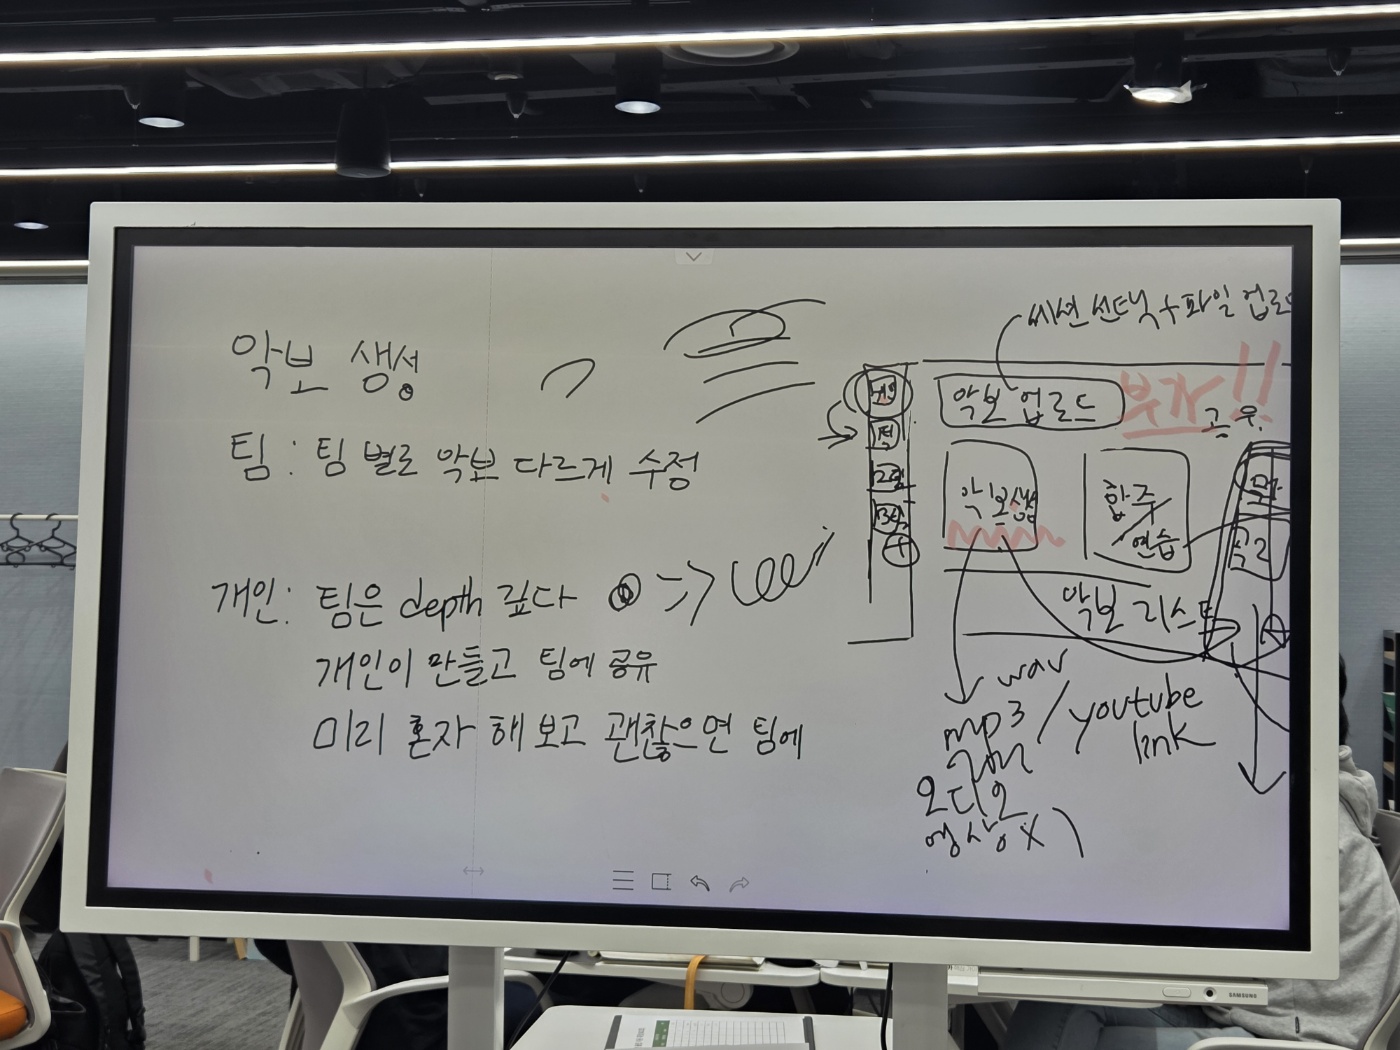 악보 생성
팀 : 팀 별로 악보 다르게 수정
개인: 팀은 depth 깊다 =>
개인이 만들고 팀에 공유
미리 혼자 해보고 괜찮으면 팀에
세션 선택 + 파일 업로드
개인
악보 업로드
부가!!
악보생성
합주/연습
악보 리스트
wav
mp3 / youtube link
오디오
영상 X)
SAMSUNG